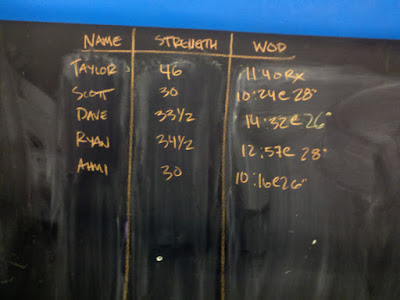 NAME STRENGTH WOD
TAYLOR 46 11:40 RX
SCOTT 30 10:24@28"
DAVE 33 1/2 14:32@26"
RYAN 34 1/2 12:57@28"
AHMI 30 10:16@26"